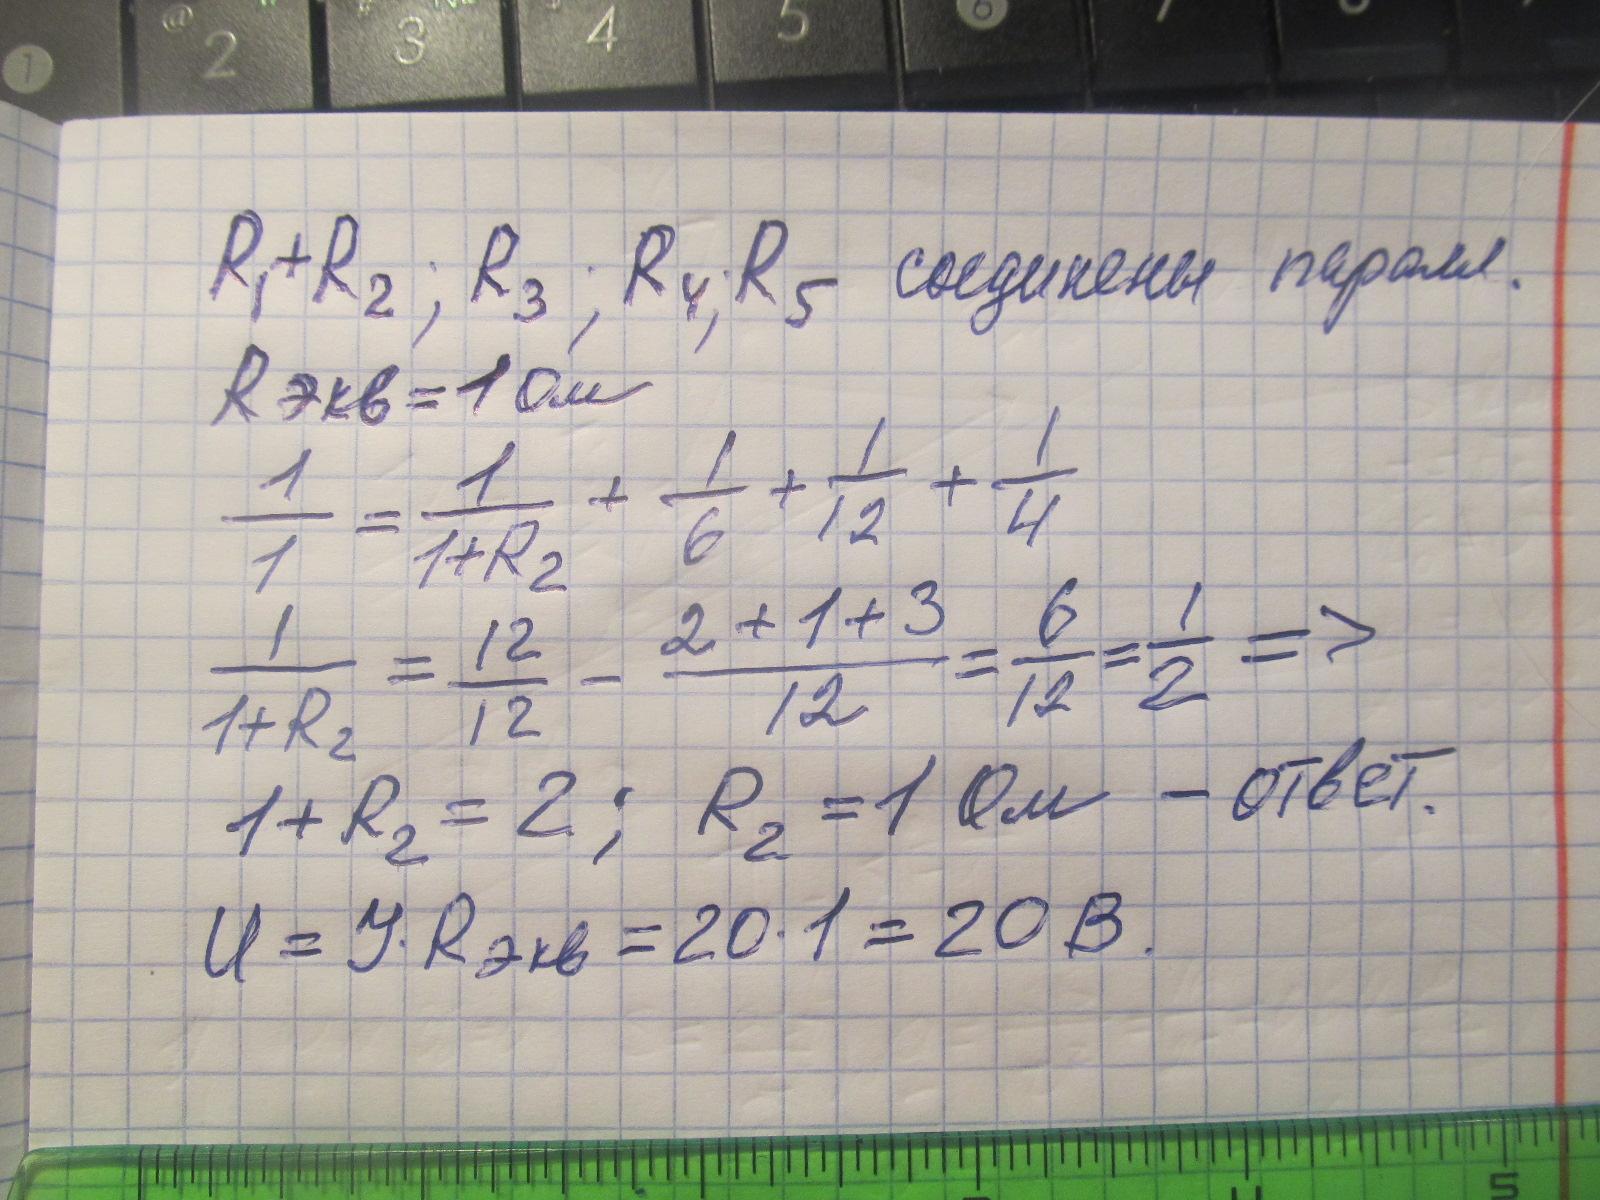 1 @ 2 3 4 5 6 7 8
R₁+R₂; R₃; R₄; R₅ соединены паралл.
Rэкв=1 Ом
1/1 = 1/(1+R₂) + 1/6 + 1/12 + 1/4
1/(1+R₂) = 12/12 - (2+1+3)/12 = 6/12 = 1/2 =>
1+R₂ = 2; R₂ = 1 Ом - ответ.
U = У·Rэкв = 20·1 = 20 В.
4 5